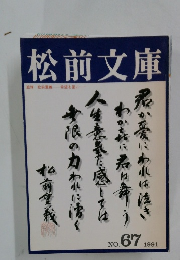 松前文庫
君が愛にわれは泣き
わが喜に君は舞う
人生意気に感じては
無限の力われに湧く
松前重義
NO.67 1991